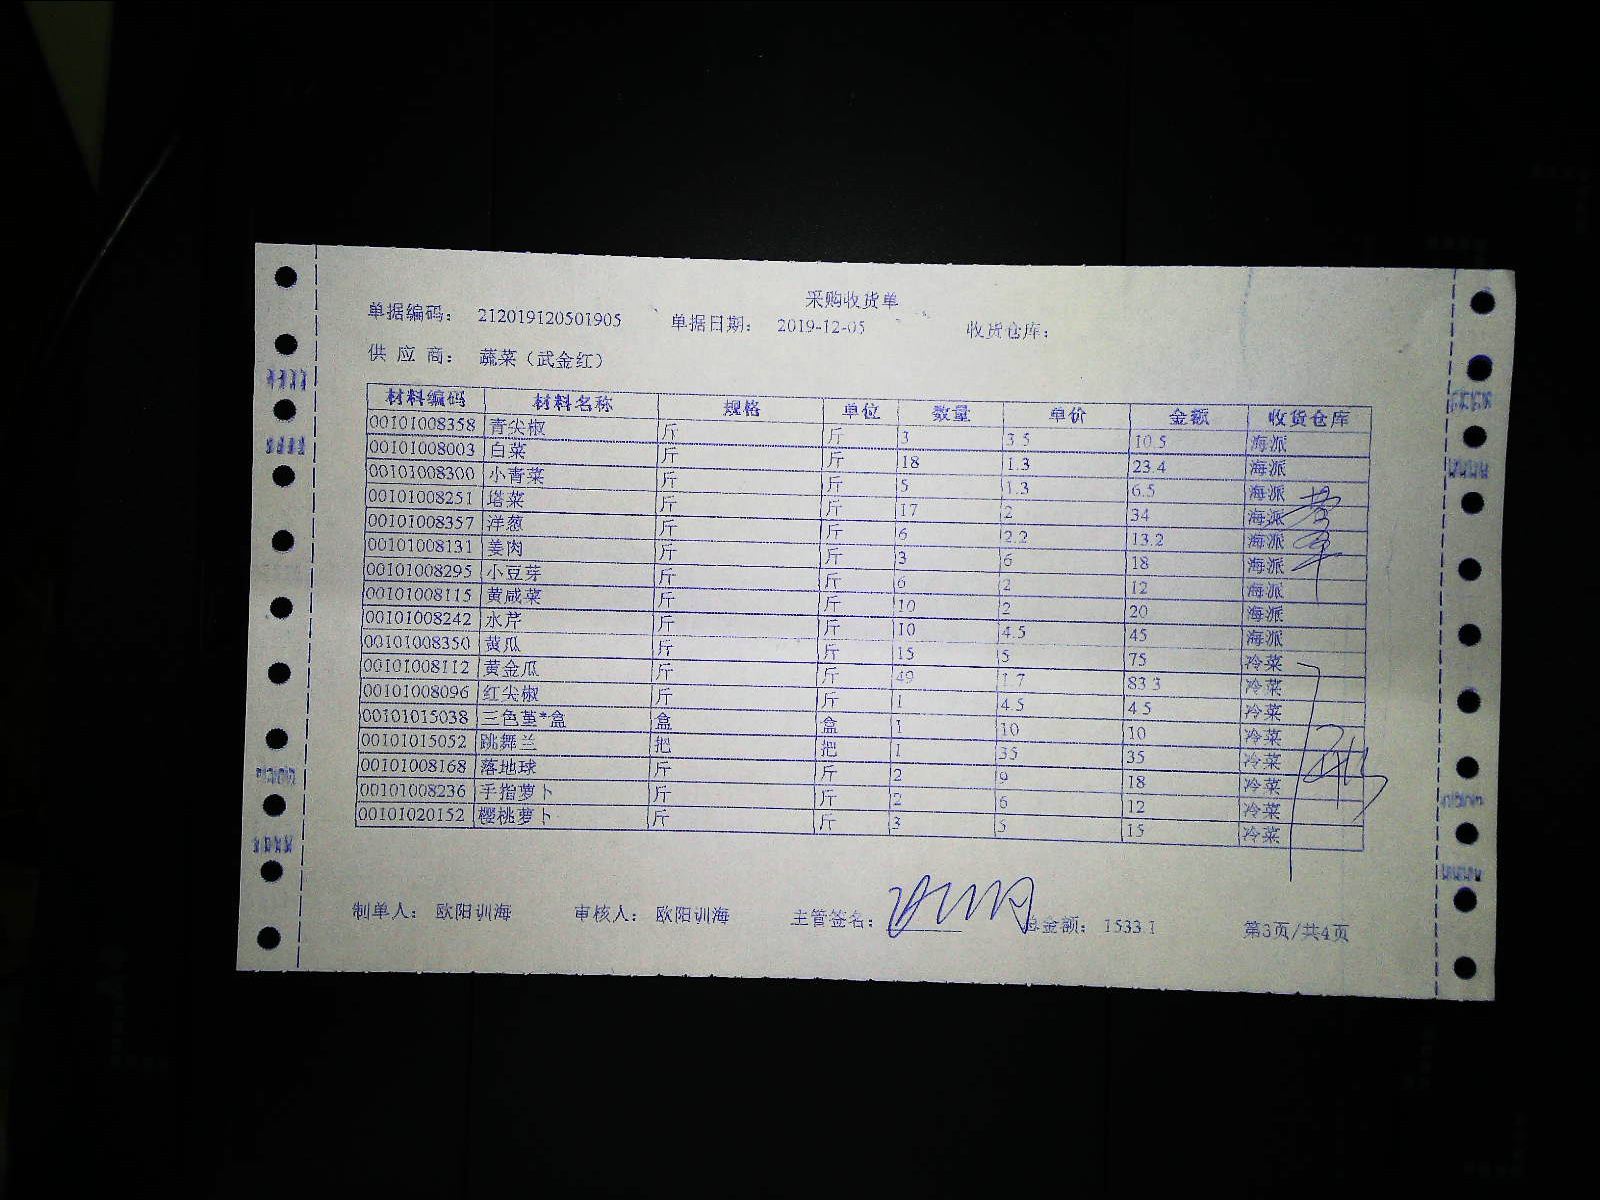 采购收货单
单据编码： 212019120501905 单据日期： 2019-12-05 收货仓库：
供 应 商： 蔬菜（武金红）
材料编码 材料名称 规格 单位 数量 单价 金额 收货仓库
00101008358 青尖椒 斤 斤 3 3.5 10.5 海派
00101008003 白菜 斤 斤 18 1.3 23.4 海派
00101008300 小青菜 斤 斤 5 1.3 6.5 海派
00101008251 塔菜 斤 斤 17 2 34 海派
00101008357 洋葱 斤 斤 6 2.2 13.2 海派
00101008131 姜肉 斤 斤 3 6 18 海派
00101008295 小豆芽 斤 斤 6 2 12 海派
00101008115 黄咸菜 斤 斤 10 2 20 海派
00101008242 水芹 斤 斤 10 4.5 45 海派
00101008350 黄瓜 斤 斤 15 5 75 冷菜
00101008112 黄金瓜 斤 斤 49 1.7 83.3 冷菜
00101008096 红尖椒 斤 斤 1 4.5 4.5 冷菜
00101015038 三色堇*盒 盒 盒 1 10 10 冷菜
00101015052 跳舞兰 把 把 1 35 35 冷菜
00101008168 落地球 斤 斤 2 9 18 冷菜
00101008236 手指萝卜 斤 斤 2 6 12 冷菜
00101020152 樱桃萝卜 斤 斤 3 5 15 冷菜
制单人： 欧阳训海 审核人： 欧阳训海 主管签名： 总金额： 1533.1 第3页/共4页